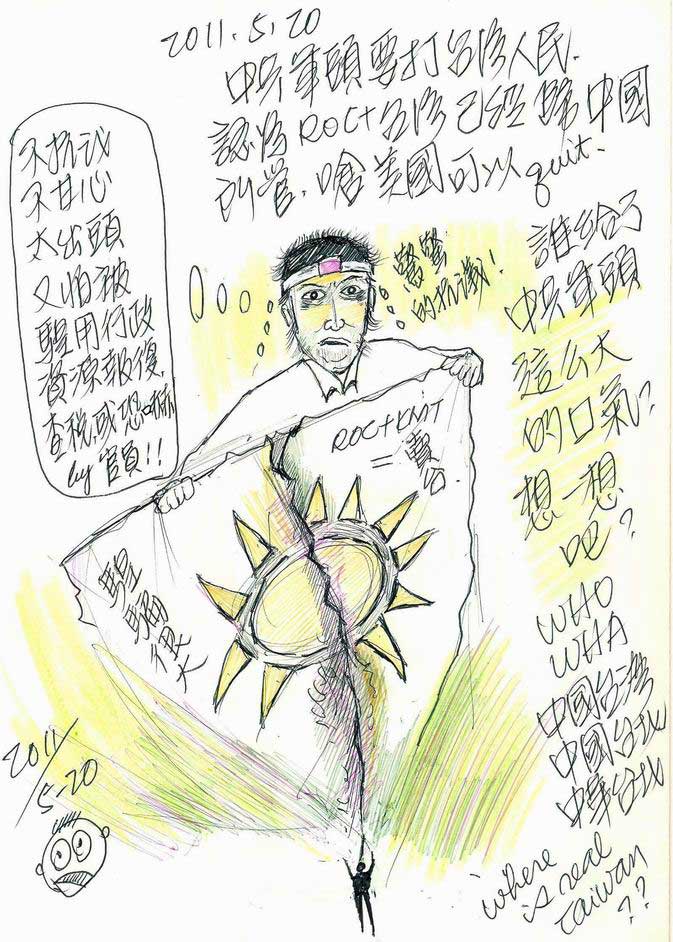 2011.5.20
中共軍頭要打台灣人民.
認為ROC+台灣已經歸中國
所管.嗆美國可以quit.
不抗議
不甘心
太出頭
又怕被
騜用行政
資源報復.
查稅,或恐嚇
by 官員!!
驚驚
的抗議!
誰給了
中共軍頭
這么大
的口氣?
想一想
吧?
ROC+KMT
=賣台
騜
騙
很
大
WHO
WHA
中國台灣
中國台北
中華台北
where
is real
taiwan
??
2011/
5-20